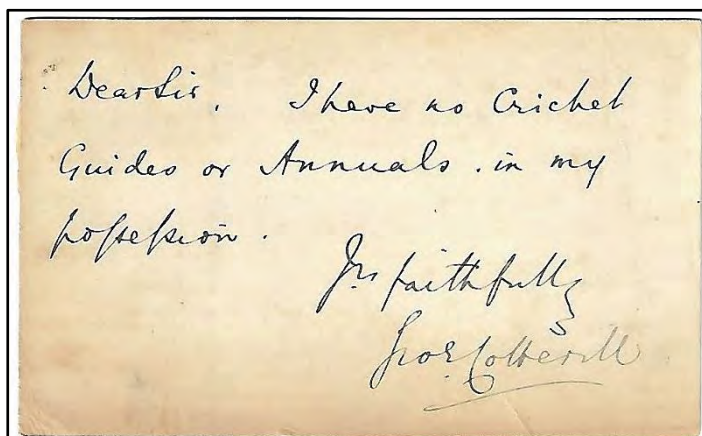 Dear Sir, I have no Cricket
Guides or Annuals. in my
possession.
Yrs faithfully
Cotterill